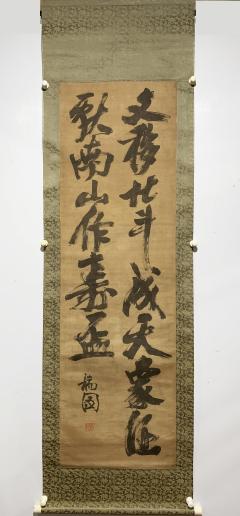 文移北斗成天象酒
獻南山作壽盃
瑞圖